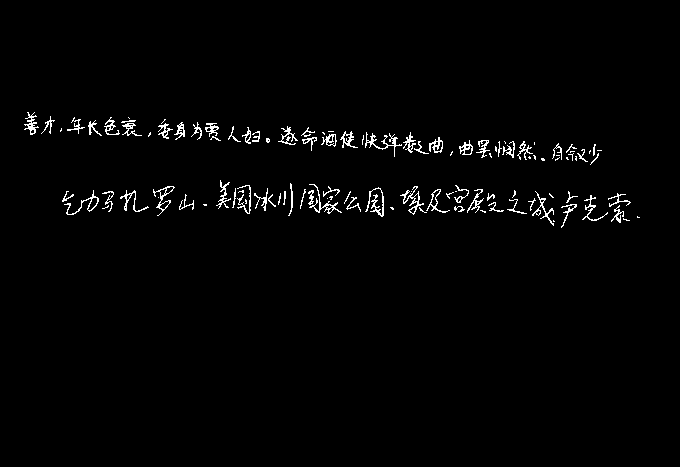 善才，年长色衰，委身为贾人妇。遂命酒使快弹数曲，曲罢悯然。自叙少
乞力马扎罗山、美国冰川国家公园、埃及宫殿之城卢克索、